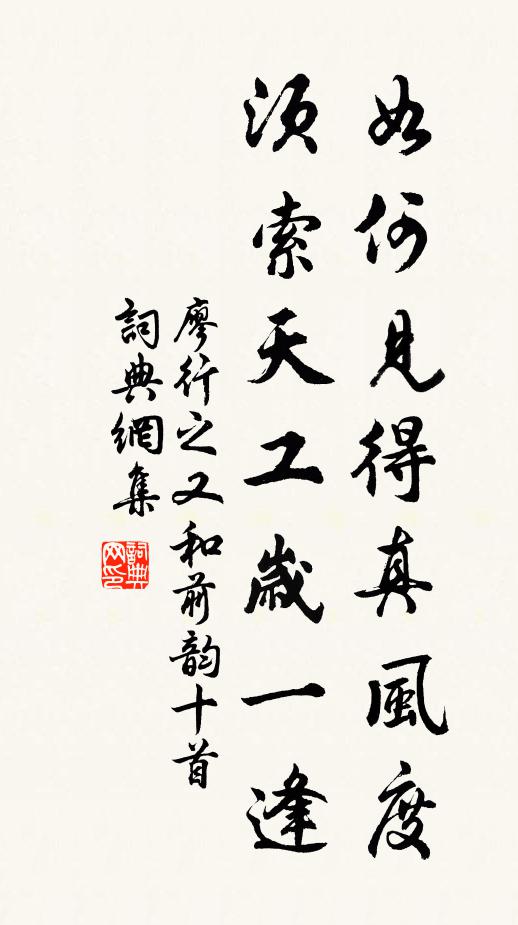 如何見得真風度
須索天工歲一逢
廖行之又和前韵十首
詞典網集
詞典网印